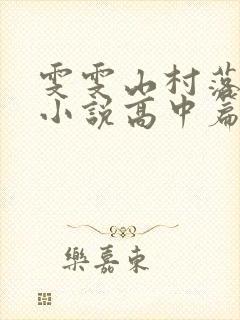 雯雯山村落
小说高中篇
樂嘉東